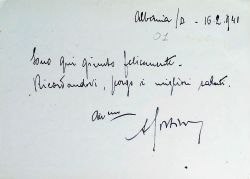 Albania /A - 16.2.941
01
Sono qui giunto felicemente.
Ricordandovi, porgo i migliori saluti.